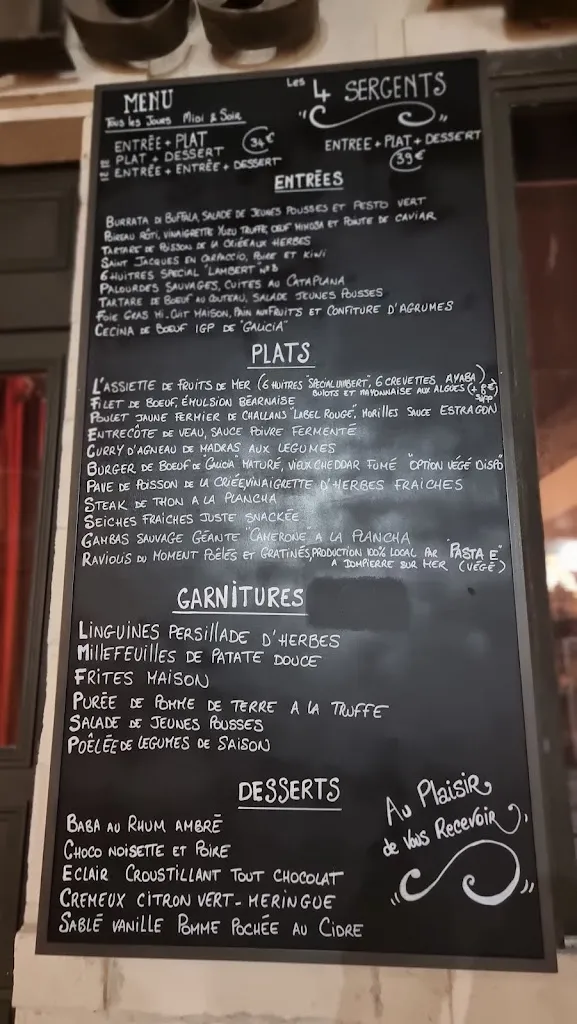 MENU
Tous les Jours Midi & Soir
Les 4 SERGENTS
ENTRÉE + PLAT
PLAT + DESSERT
ENTRÉE + ENTRÉE + DESSERT
34€
ENTREE + PLAT + DESSERT
39€
ENTRÉES
BURRATA DI BUFFALA, SALADE DE JEUNES POUSSES ET PESTO VERT
POIREAU RÔTI, VINAIGRETTE YUZU TRUFFE OEUF MIMOSA ET POINTE DE CAVIAR
TARTARE DE POISSON DE LA CRIÉE AUX HERBES
SAINT JACQUES EN CARPACCIO, POIRE ET KIWI
6 HUITRES SPECIAL "LAMBERT" N°3
PALOURDES SAUVAGES, CUITES AU CATAPLANA
TARTARE DE BOEUF AU COUTEAU, SALADE JEUNES POUSSES
FOIE GRAS MI-CUIT MAISON, PAIN AUX FRUITS ET CONFITURE D'AGRUMES
CECINA DE BOEUF IGP DE "GALICIA"
PLATS
L'ASSIETTE DE FRUITS DE MER (6 HUITRES "SPECIAL LAMBERT", 6 CREVETTES AYABA)
BULOTS ET MAYONNAISE AUX ALGUES
FILET DE BOEUF, ÉMULSION BÉARNAISE
POULET JAUNE FERMIER DE CHALLANS "LABEL ROUGE", MORILLES SAUCE ESTRAGON
ENTRECÔTE DE VEAU, SAUCE POIVRE FERMENTÉ
CURRY D'AGNEAU DE MADRAS AUX LEGUMES
BURGER DE BOEUF DE "GALICIA" MATURÉ, VIEUX CHEDDAR FUMÉ "OPTION VÉGÉ DISPO"
PAVE DE POISSON DE LA CRIÉE VINAIGRETTE D'HERBES FRAICHES
STEAK DE THON A LA PLANCHA
SEICHES FRAICHES JUSTE SNACKÉE
GAMBAS SAUVAGE GÉANTE "CAMERONE" A LA PLANCHA
RAVIOLIS DU MOMENT POÊLÉS ET GRATINÉS, PRODUCTION 100% LOCAL PAR "PASTA E"
A DOMPIERRE SUR MER (VÉGÉ)
GARNITURES
LINGUINES PERSILLADE D'HERBES
MILLEFEUILLES DE PATATE DOUCE
FRITES MAISON
PURÉE DE POMME DE TERRE A LA TRUFFE
SALADE DE JEUNES POUSSES
POÊLÉE DE LEGUMES DE SAISON
DESSERTS
BABA AU RHUM AMBRÉ
CHOCO NOISETTE ET POIRE
ECLAIR CROUSTILLANT TOUT CHOCOLAT
CREMEUX CITRON VERT - MERINGUE
SABLÉ VANILLE POMME POCHÉE AU CIDRE
Au Plaisir
de Vous Recevoir